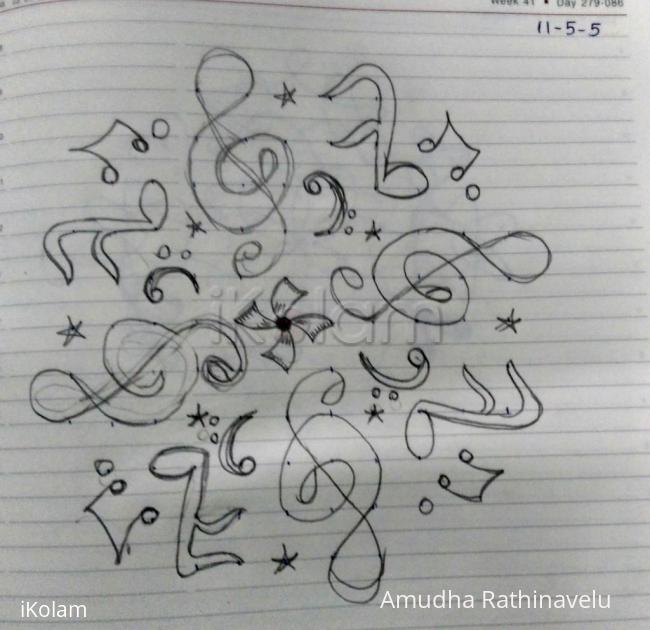 Week 41 • Day 279-086
11-5-5
iKolam
iKolam
Amudha Rathinavelu